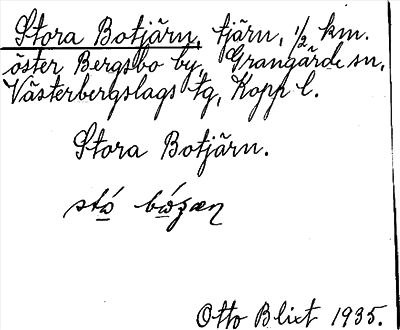 Stora Botjärn, tjärn, 1/2 km.
öster Bergsbo by, Grangärde sn,
Västerbergslags tg, Kopp l.
Stora Botjärn.
Otto Blixt 1935.